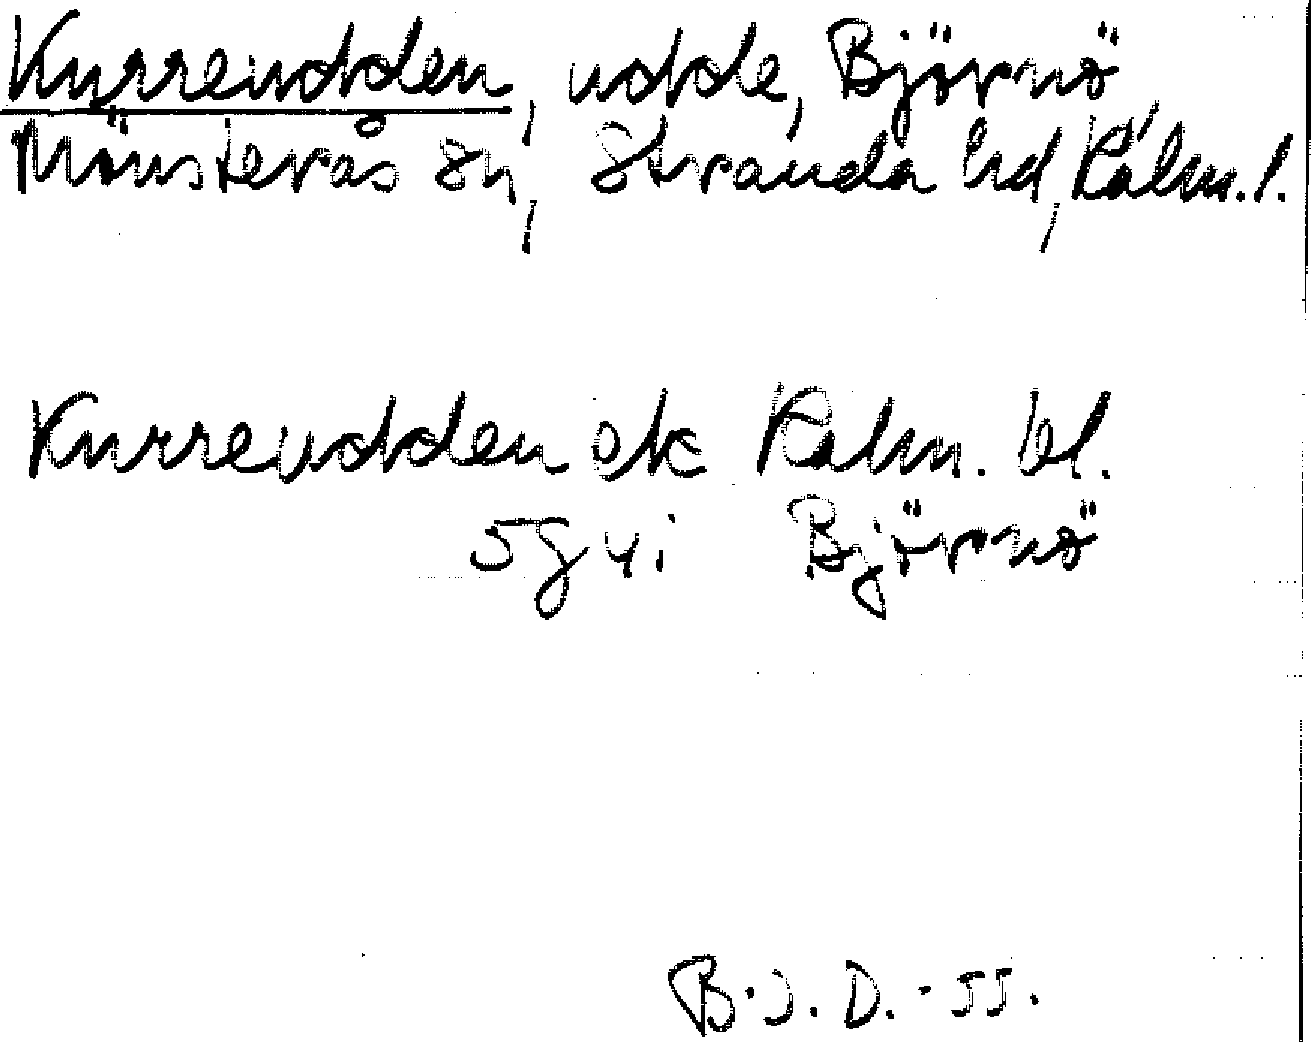 Kurreudden, udde, Björnö,
Mönsterås sn, Stranda hd, Kalm. l.
Kurreudden ek Kalm. bl.
5 g y i Björnö
B. J. D. - 55.